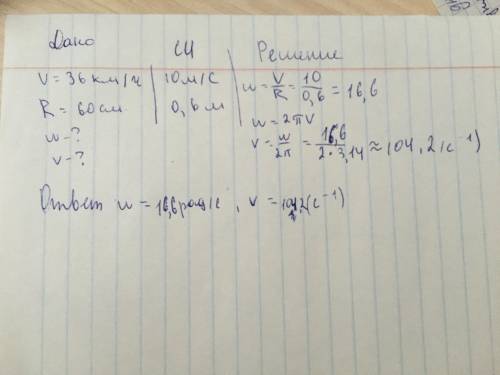 Дано СИ Решение
V = 36 км/ч 10 м/с w = V/R = 10/0,6 = 16,6
R = 60 см 0,6 м w = 2πV
w - ? V = w/2π = 16,6/2·3,14 ≈ 104,2 (с⁻¹)
v - ?
Ответ w = 16,6 рад/с, v = 104,2 (с⁻¹)